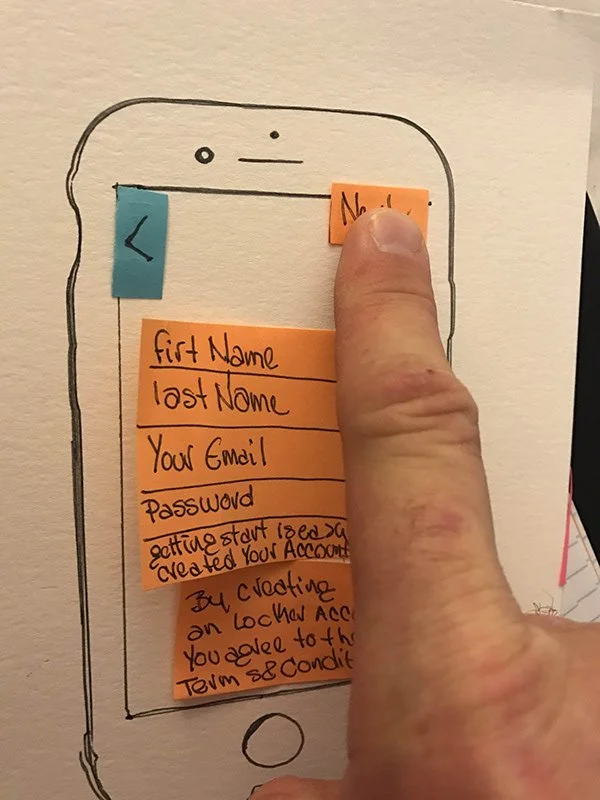 <
firt Name
last Name
Your Email
Password
getting start is easy
created Your Account
By creating
an Locker Acc
You agree to th
Terms & Condit